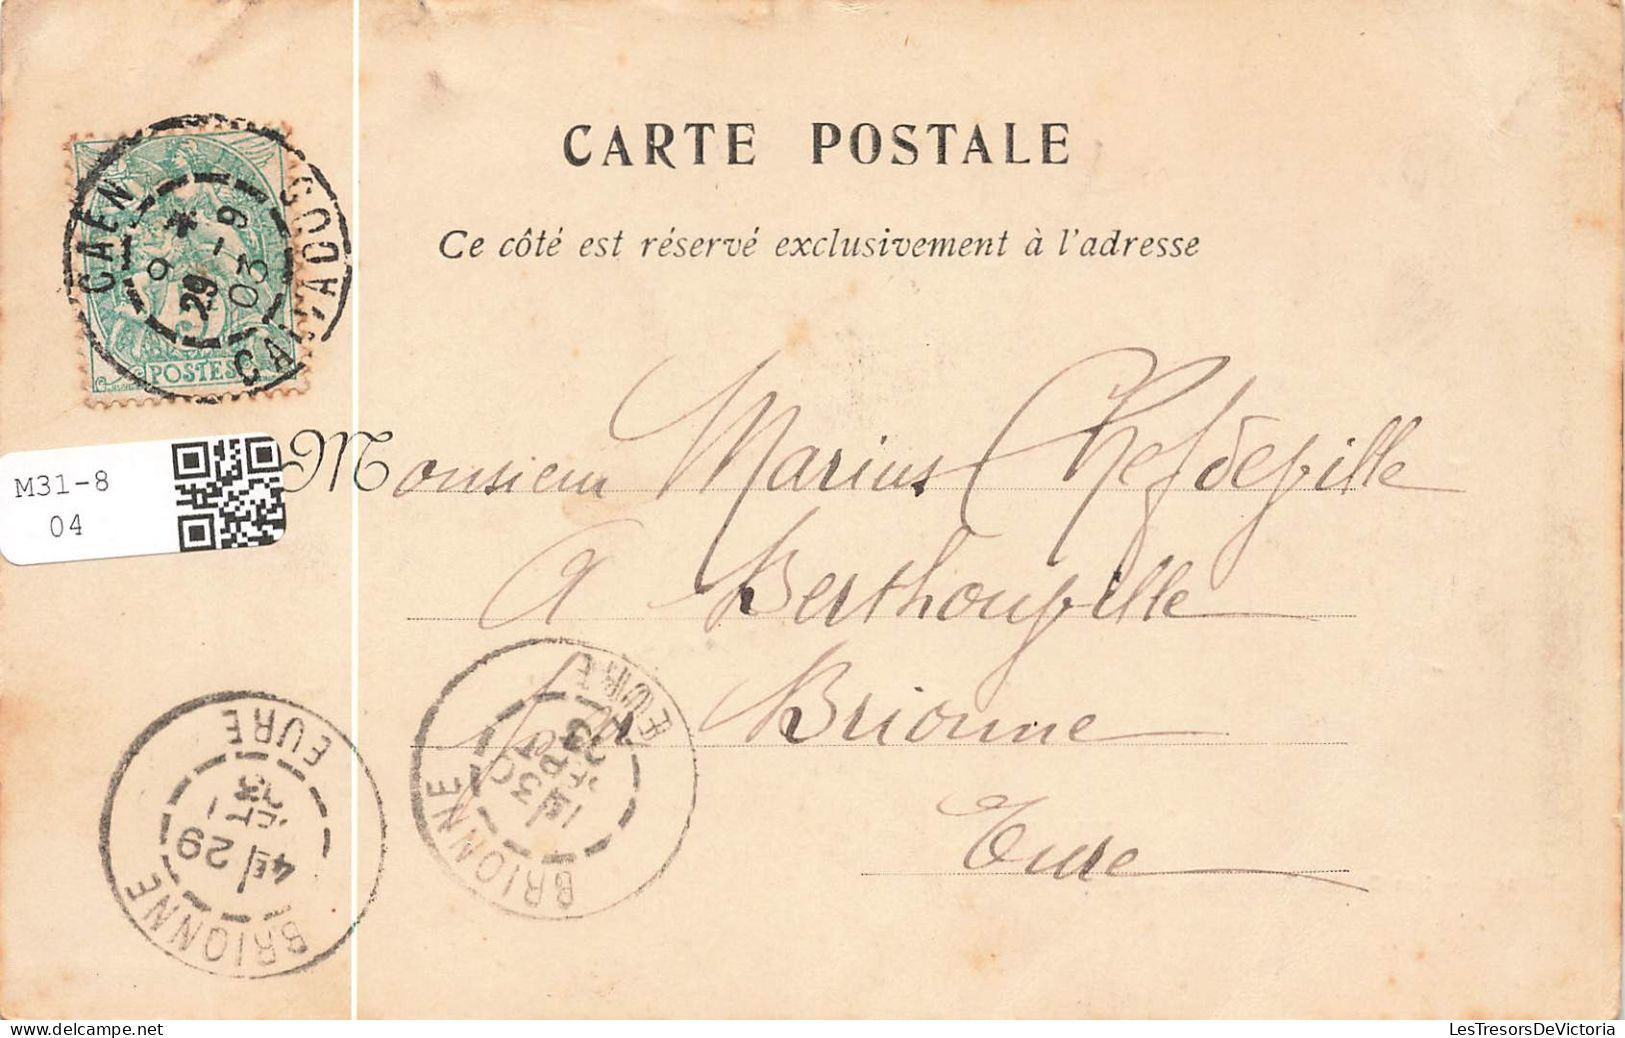 CARTE POSTALE
Ce côté est réservé exclusivement à l'adresse
CAEN CALVADOS
9 * 29 -9 03
5
POSTES
M31-8
04
Monsieur Marius Chefdeville
A Berthouville
par Brionne
Eure
BRIONNE EURE
4E 29
BRIONNE EURE
1E 30 SEPT 03
LesTresorsDeVictoria